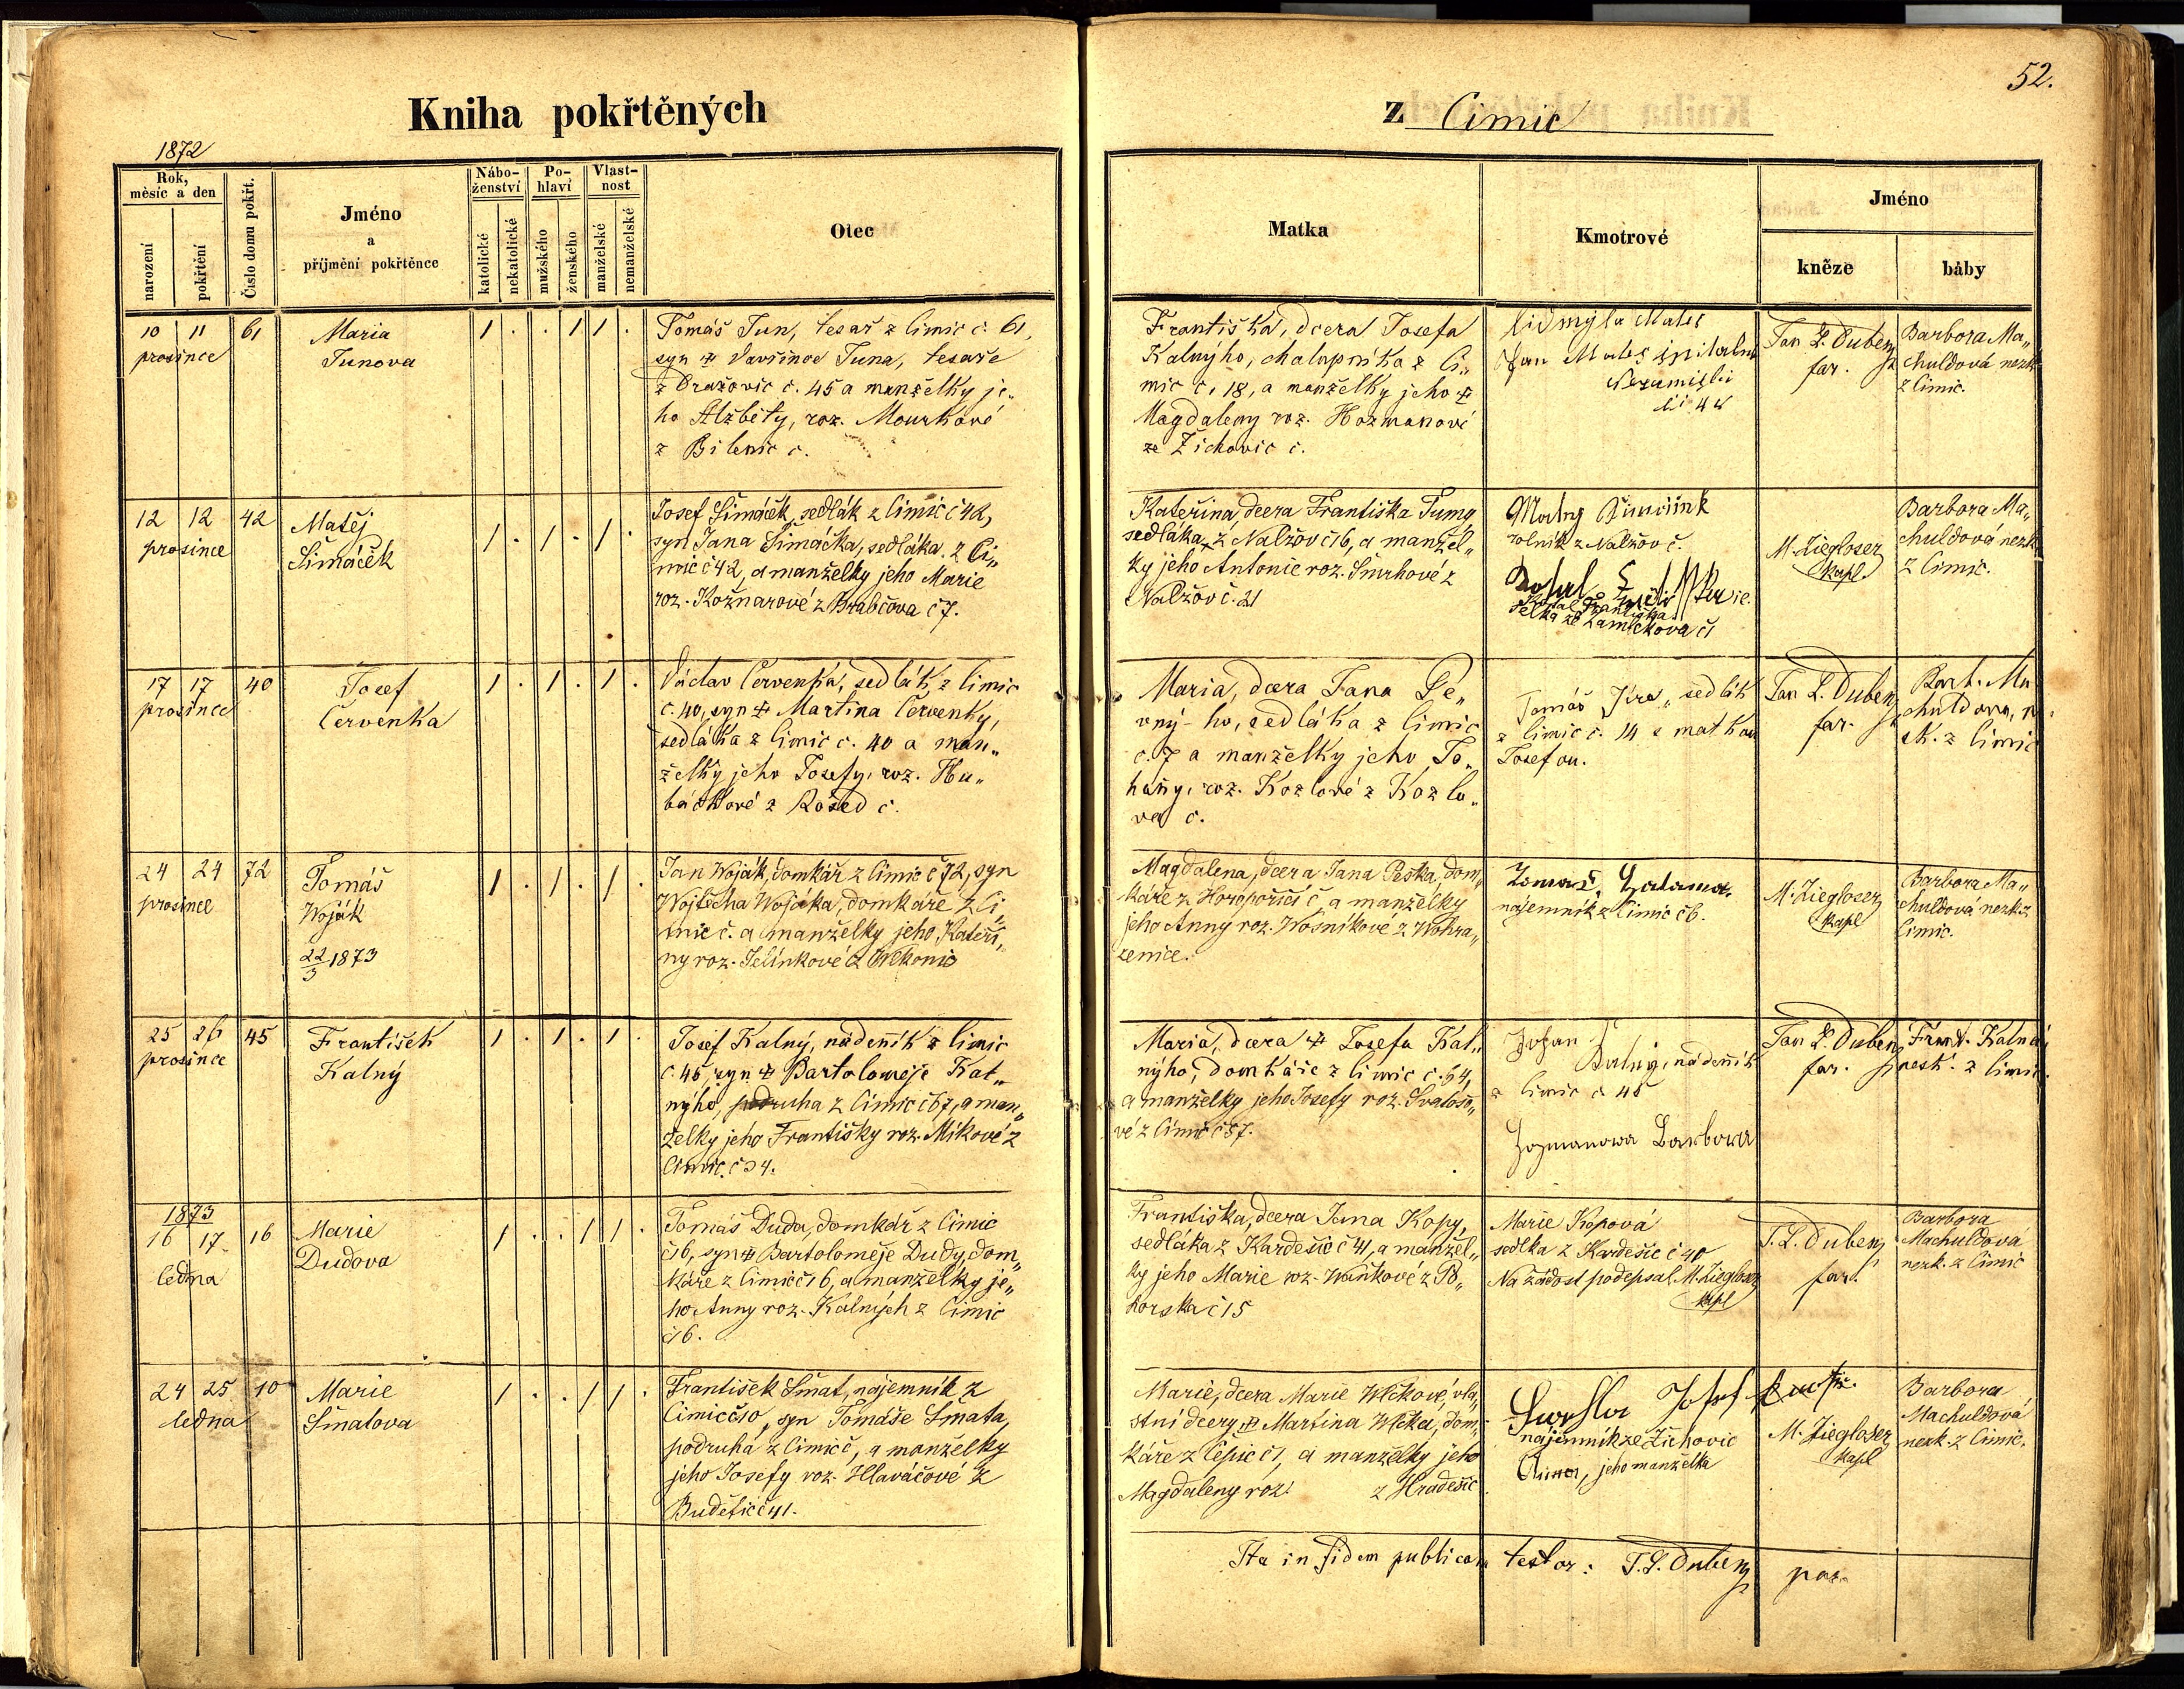 52.
Kniha pokřtěných
z Cimic
1872
Rok,
měsíc a den
narození
pokřtění
Číslo domu pokřt.
Jméno
a
příjmění pokřtěnce
Nábo-
ženství
katolické
nekatolické
Po-
hlaví
mužského
ženského
Vlast-
nost
manželské
nemanželské
Otec
Matka
Kmotrové
Jméno
kněze
báby
10 11 61
prosince
Maria
Tunova
1 . . 1 1 .
Tomáš Tun, tesař z Cimic č. 61,
syn ✠ Vavřince Tuna, tesaře
z Dražovic č. 45 a manželky je„
ho Alžběty, roz. Mourkové
z Bilenic č.
Františka, dcera Josefa
Kalnýho, chalupníka z Ci„
mic č. 18, a manželky jeho ✠
Magdaleny roz. Hozmanové
ze Žichovic č.
Lidmyla Maleš
Jan Maleš
Nezamišli
44
Jan L. Dubenz
far.
Barbora Ma„
chuldová nezk.
z Cimic.
12 12 42
prosince
Matěj
Šimáček
1 . 1 . 1 .
Josef Šimáček, sedlák z Cimic č 42,
syn Jana Šimáčka, sedláka z Ci„
mic č 42, a manželky jeho Marie
roz. Kožnarové z Brabčova č 7.
Kateřina, dcera Františka Tumy
sedláka z Nalžov č 16, a manžel„
ky jeho Antonie roz. Smrhové z
Nalžov č. 21
rolník z Nalžov č.
Františka
selka ze Zamlekova č 1
M. Ziegloser
kapl.
Barbora Ma„
chuldová nezk.
z Cimic.
17 17 40
prosince
Josef
Červenka
1 . 1 . 1 .
Václav Červenka, sedlák z Cimic
č. 40, syn ✠ Martina Červenky,
sedláka z Cimic č. 40 a man„
želky jeho Josefy, roz. Hu„
báčkové z Rosed č.
Maria, dcera Jana Pe„
vný-ho, sedláka z Cimic
č. 7 a manželky jeho Jo„
hany, roz. Kozlové z Kozlo„
va č.
Tomáš Jíra, sedlák
z Cimic č. 14 s matkou
Josefou.
Jan L. Dubenz
far.
Barb. Ma
chuldova, n.
zk. z Cimic
24 24 72
prosince
Tomáš
Woják
22/3 1873
1 . 1 . 1 .
Jan Woják, domkář z Cimic č 72, syn
Wojtěcha Wojáka, domkáře z Ci„
mic č. a manželky jeho Kateři„
ny roz. Jelínkové z Wlkonic
Magdalena, dcera Jana Peška, dom„
káře z Horopoříčí č, a manželky
jeho Anny roz. Wosníkové z Wohra„
zenice.
nájemník z Cimic č 6.
M. Ziegloser
kapl
Barbora Ma„
chuldová nezk. z
Cimic.
25 26 45
prosince
František
Kalný
1 . 1 . 1 .
Josef Kalný, nádeník z Cimic
č. 45, syn ✠ Bartolomeje Kal„
nýho, podruha z Cimic č 67, a man„
želky jeho Františky roz. Míkové z
Cimic č 34.
Maria, dcera ✠ Josefa Kal„
nýho, domkáře z Cimic č. 64,
a manželky jeho Josefy roz. Svatoso„
vé z Cimic č 57.
Johan
Kalný, nádeník
z Cimic č 45
Hozmanowa Barbora
Jan L. Dubenz
far.
Frant. Kalná,
nezk. z Cimic.
1873
16 17 16
ledna
Marie
Dudova
1 . . 1 1 .
Tomáš Duda, domkář z Cimic
č 16, syn ✠ Bartoloměje Dudy, dom„
káře z Cimic č 16, a manželky je„
ho Anny roz. Kalných z Cimic
č 16.
Františka, dcera Jana Kopy,
sedláka z Kardešic č 41, a manžel„
ky jeho Marie roz. Waňkové z Po„
horska č 15
Marie Kopová
sedlka z Kardešic č 40
Na žádost podepsal M. Ziegloser
kapl
J. L. Dubenz
far.
Barbora
Machuldová
nezk. z Cimic
24 25 10
ledna
Marie
Šmatova
1 . . 1 1 .
František Šmat, nájemník z
Cimic č 10, syn Tomáše Šmata,
podruha z Cimic č, a manželky
jeho Josefy roz. Hlaváčové z
Budětic č 41.
Marie, dcera Marie Wlčkové, vla„
stní dcery ✠ Martina Wlčka, dom„
káře z Čepic č 1, a manželky jeho
Magdaleny roz. z Hradešic
Josef
nájemník ze Žichovic
Anna, jeho manželka
M. Ziegloser
kapl
Barbora
Machuldová
nezk. z Cimic.
Ita in fidem publicam testor: J. L. Dubenz par.